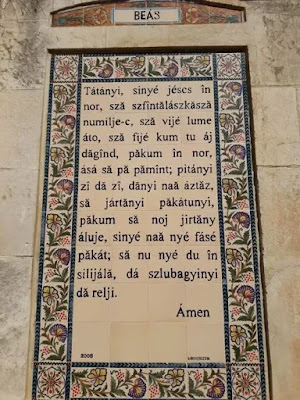 BEÁS
Tátányi, sinyé jéscs în
nor, sză szfintălászkăsză
numilje-c, sză vijé lume
áto, sză fijé kum tu áj
dăgînd, păkum în nor,
ásá să pă pămînt; pitányi
zî dă zî, dányi naă áztăz,
să jártányi păkátunyi,
păkum să noj jirtány
áluje, sinyé naă nyé fásé
păkát; să nu nyé du în
silijálă, dá szlubagyinyi
dă relji.
Ámen
2005